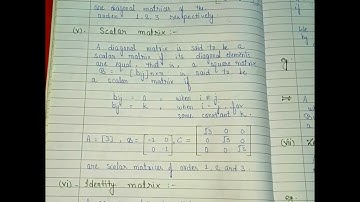 are diagonal matrices of the
order 1, 2, 3 respectively
(v). Scalar matrix :-
A diagonal matrix is said to be a
scalar matrix if its diagonal elements
are equal, that is, a square matrix
B = [bij]n×n is said to be
a scalar matrix if
bij = 0, when i ≠ j
bij = k, when i = j, for
some constant k.
A = [3], B = [-1 0 , C = [√3 0 0
0 -1] 0 √3 0
0 0 √3]
are scalar matrices of order 1, 2 and 3
(vi) Identity matrix :-
(vii)